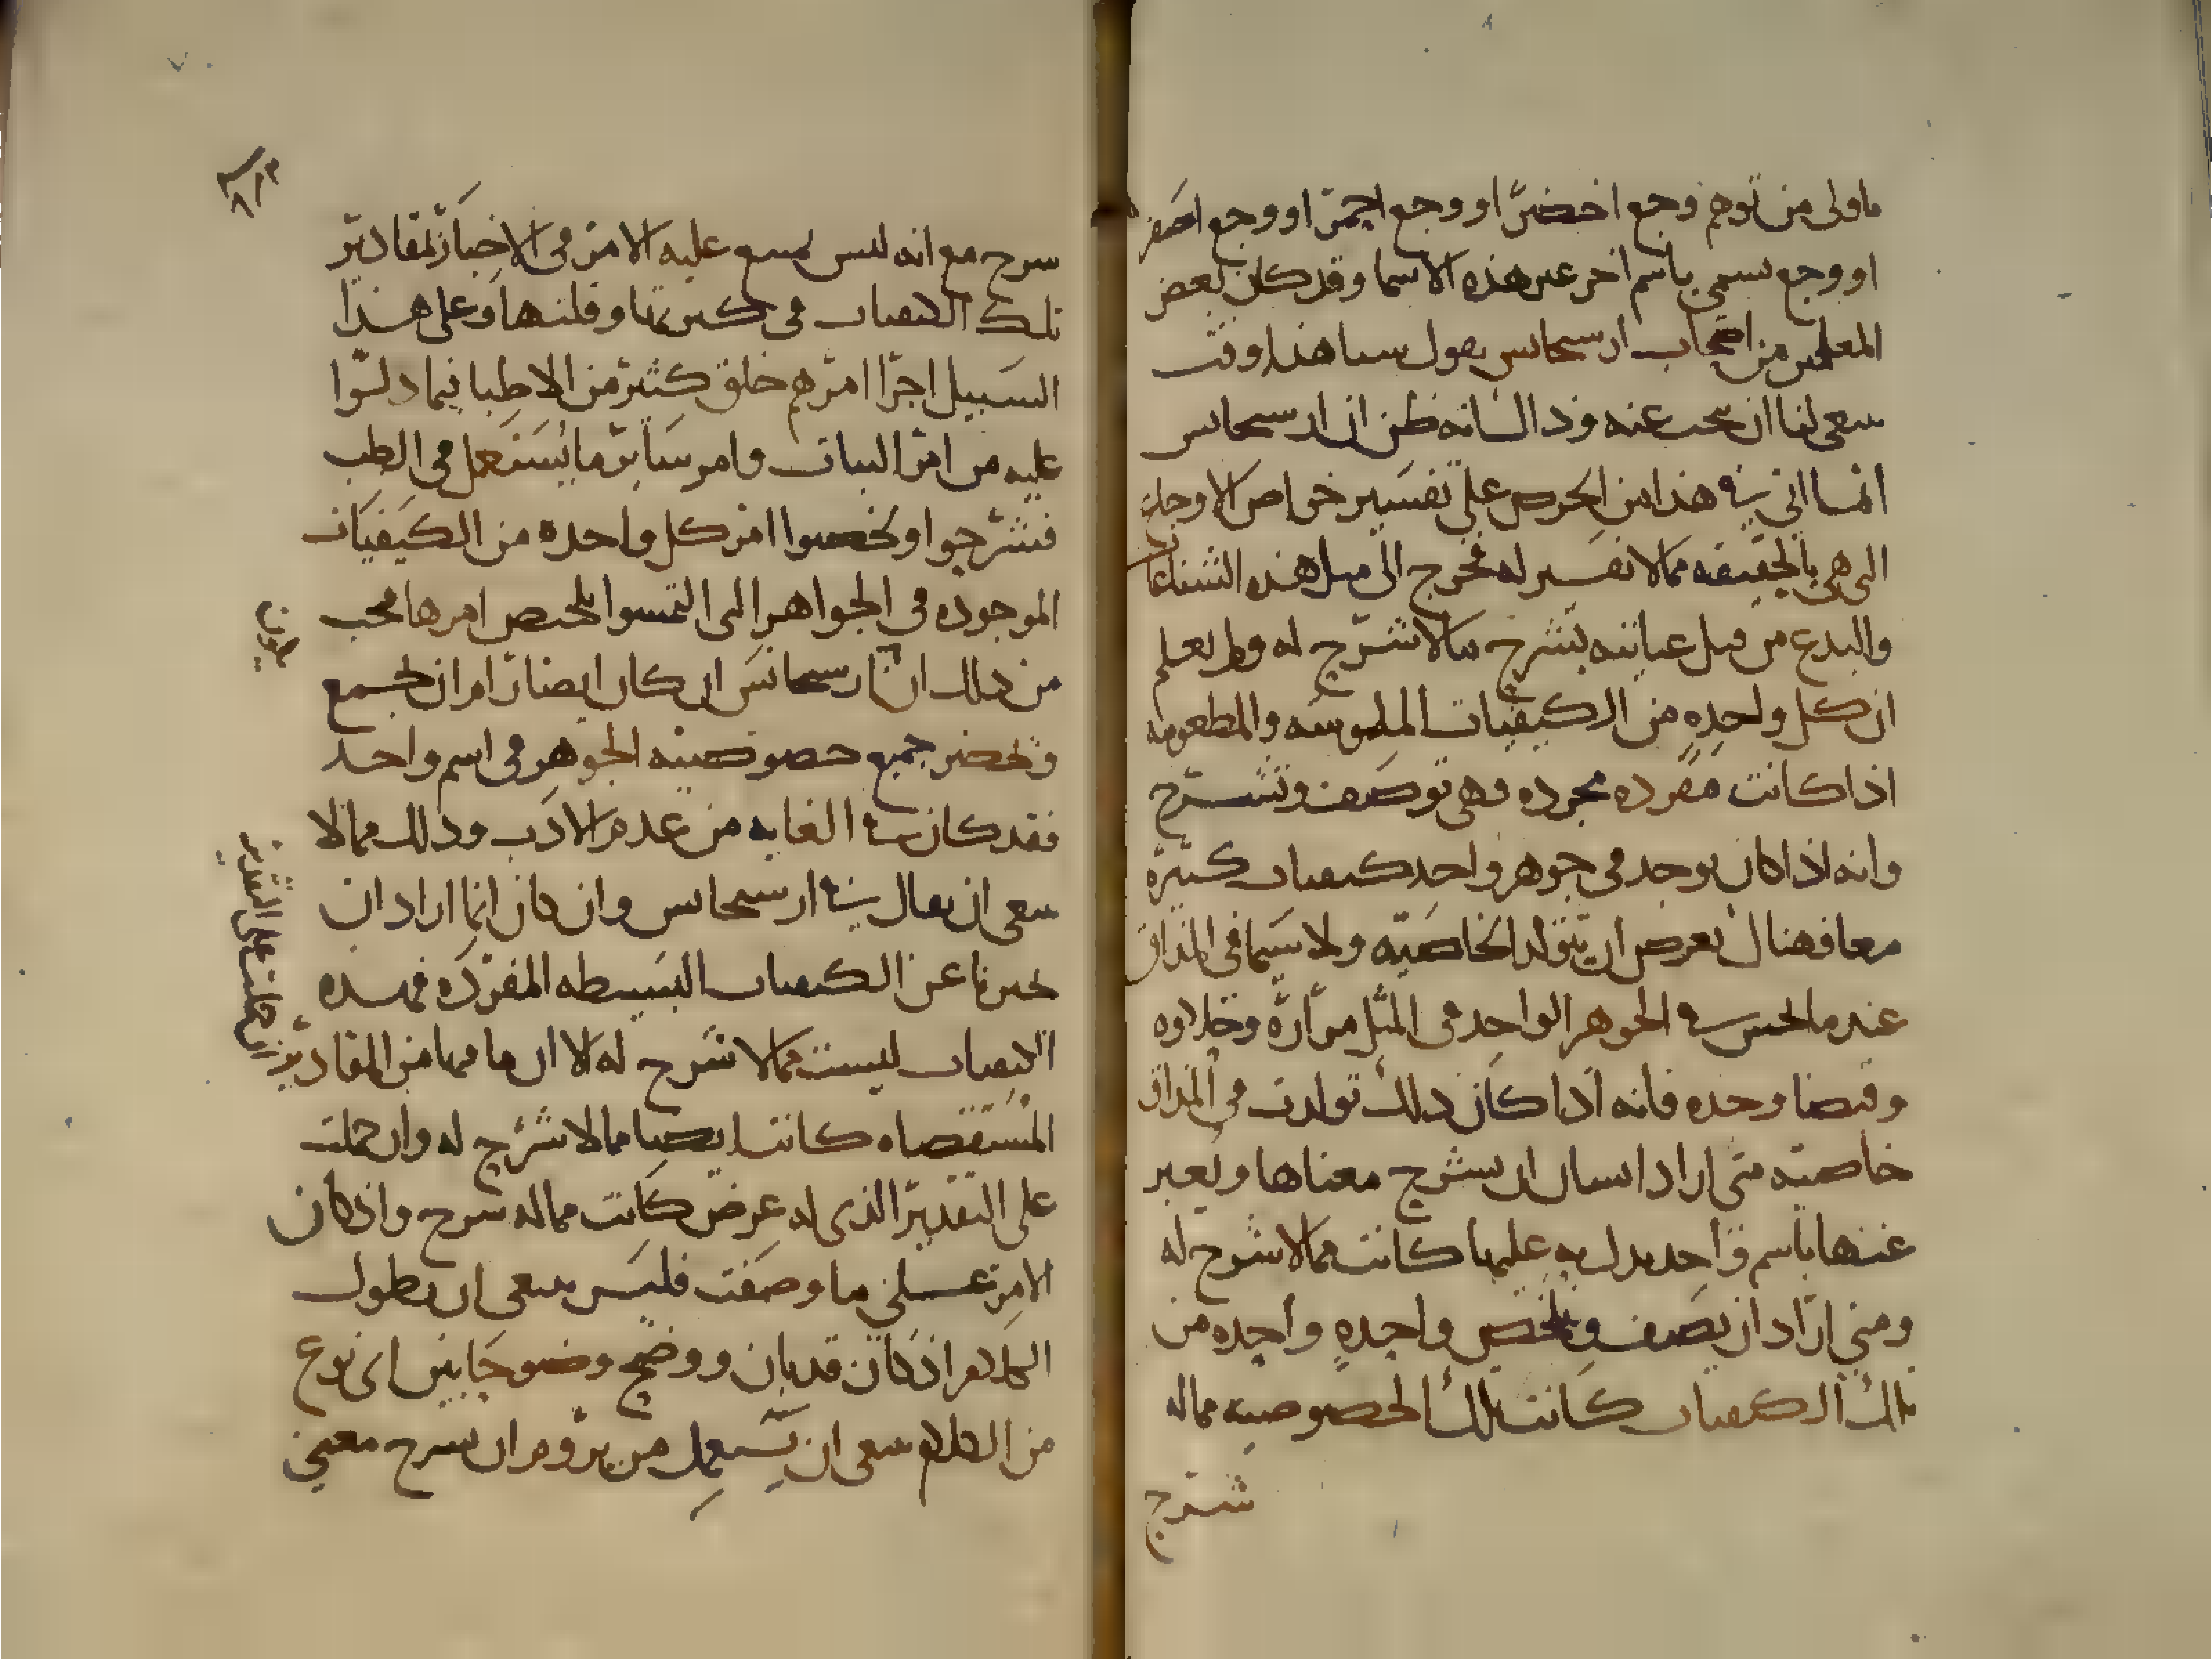 ماولى من توهم وجع اخضر او وجع احمر او وجع اصفر
او وجع يسمى باسم اخر غير هذه الاسما وقد كان بعض
المعلمين من اصحاب ارسيجانس يقول بينا هذا وقت
ينبغي لنا ان نبحث عنه وذاك انه ظن ان ارسيجانس
انما اتى في هذا من الحرص على تفسير خواص الاوجاع
التي هي بالحقيقه مما لا تفسير له فخرج الى مثل هذه الشناعات
والبدع من قبل عنايته بشرح ما لا شرح له ولم يعلم
ان كل واحده من الكيفيات الملموسه والمطعومه
اذا كانت مفرده مجرده فهي توصف وتشرح
وانه اذا كان يوجد في جوهر واحد كيفيات كثيره
معا فهناك يعرض ان تتولد الخاصيه ولا سيما في المذاق
عندما نحس في الجوهر الواحد في المثل مراره وحلاوه
وقبضا وحده فانه اذا كان ذلك تولدت في المذاق
خاصيه متى اراد انسان ان يشرح معناها ويعبر
عنها باسم واحد يدل به عليها كانت مما لا شرح له
ومتى اراد ان يصف ويلخص واحده واحده من
تلك الكيفيات كانت تلك الخصوصيه مما له
شرح
شرح مع انه ليس يتسع عليه الامر في الاخبار بمقادير
تلك الكيفيات في كثرتها وقلتها وعلى هذا
السبيل اجرا امرهم خلق كثير من الاطبا فيما دلوا
عليه من امر النبات وامر ساير ما يستعمل في الطب
فشرحوا ولخصوا امر كل واحده من الكيفيات
الموجوده في الجواهر التي التمسوا تلخيص امرها فيجب
من ذلك ان ارسيجانس ان كان ايضا رام ان يجمع
ويحصر جميع خصوصيه الجوهر في اسم واحد
فقد كان في الغايه من عدم الادب وذلك مما لا
ينبغي ان يقال في ارسيجانس وان كان انما اراد ان
يخبرنا عن الكيفيات البسيطه المفرده فهذه
الكيفيات ليست مما لا شرح له الا ان ما فيها من المقادير
المستقصاه كانت ايضا مما لا شرح له وان حملت
على التقدير الذي له عرض كانت مما له شرح واذ كان
الامر على ما وصفت فليس ينبغي ان يطول
الكلام اذ كان قد بان ووضح وضوحا بين اي نوع
من الكلام ينبغي ان يستعمل من يروم ان يشرح معنى